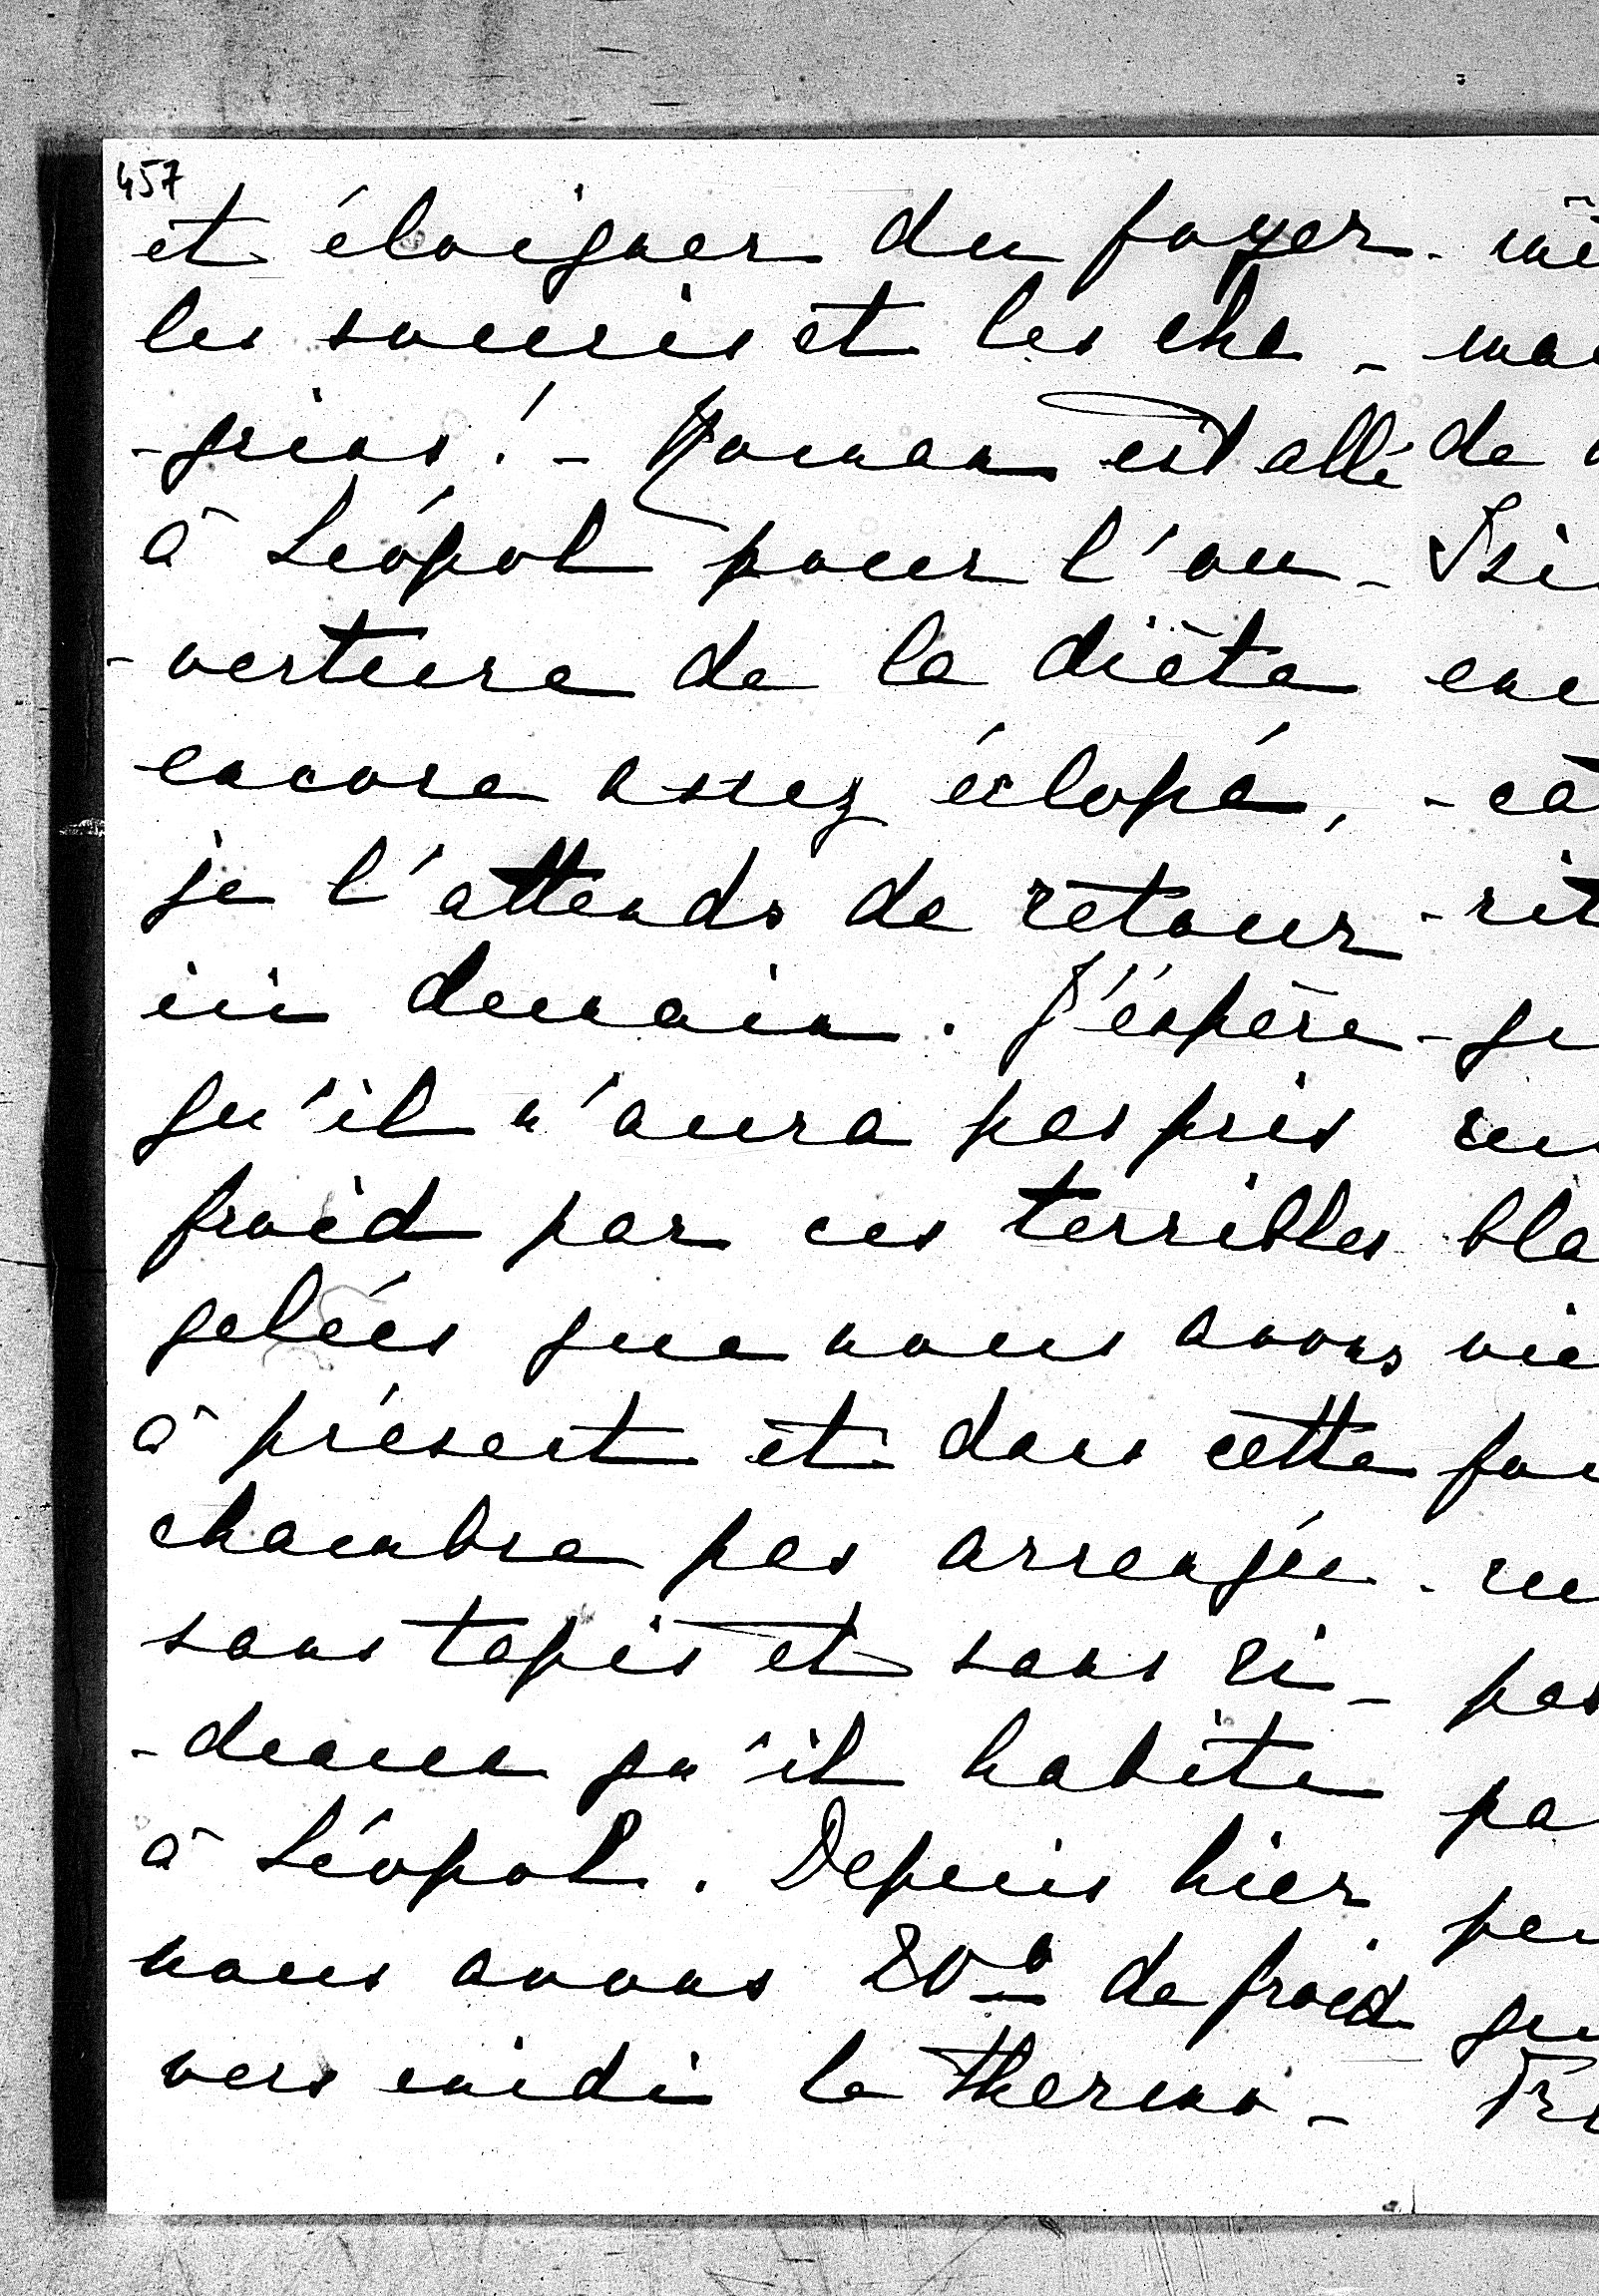 457
et éloigner du foyer
les soucis et les cha-
-grins! - Roman est allé
à Léopol pour l'ou-
-verture de la diète
encore assez éclopé,
je l'attends de retour
ici demain. J'espère
qu'il n'aura pas pris
froid par ces terribles
gelées que nous avons
à présent et dans cette
chambre pas arrangée
sans tapis et sans ri-
-deaux qu'il habite
à Léopol. Depuis hier
nous avons 20° de froid
vers midi le thermo-